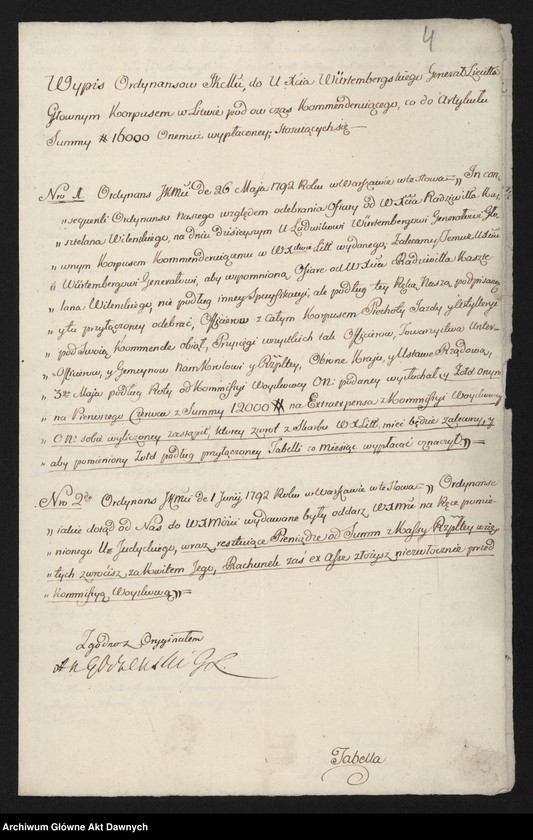 4
Wypis Ordynansow JKMci, do U Xcia Würtembergskiego Generał Lieutta
Głownym Korpusem w Litwie pod ow czas Kommenderuiącego, co do Artykułu
Summy # 16000 Onemuż wypłaconey, stosuiących się —
Nro 1 Ordynans JKMci de 26 Maja 1792 Roku w Warszawie w te słowa — „ In con„
„ sequenti Ordynansu Naszego względem odebrania Ofiary od W Xcia Radziwiłła Kasz„
„ sztelana Wileńskiego, na dniu dzisieyszym U Ludwikowi Würtembergowi Generałowi, Gło„
„ wnym Korpusem Kommenderuiącemu w W X Litt wydanego; Zalecamy Temuż U Xciu
„ Würtembergowi Generałowi, aby wspomnioną Ofiarę od W Xcia Radziwiłła Kaszte„
„ lana Wileńskiego, nie podług inney Specyfikacyi, ale podług tey Ręką Naszą podpisaney
„ y tu przyłączoney odebrał, Officerow z całym Korpusem Piechoty Jazdy y Artylleryi
„ pod Swoią Kommendę obiął, Przysięgi wszystkich tak Officerow, Towarzystwa Unter„
„ Officerow, y Gemeynow Nam Krolowi y Rzpltey, Obronę Kraju, y Ustawę Rządową,
„ 3go Maja podług Roty od Kommissyi Woyskowey ON: podaney wysłuchał, y Żołd onym
„ na Pierwszego Czerwca z Summy 12000 # na Extraexpensa z Kommissyi Woyskowey
„ ON: sobie wyliczoney zastąpił, ktorey zwrot z Skarbu W X Litt, mieć będzie zalecony, y
„ aby pomieniony Żołd podług przyłączoney Tabelli co miesiąc wypłacać oznaczył „ =
Nro 2do Ordynans JKMci de 1 Junij 1792 Roku w Warszawie w te słowa — „ Ordynanse
„ iakie dotąd od Nas do WMMści wydawane były oddasz WMM na Ręce pomie„
„ nionego Ur Judyckiego, wraz resztuiące Pieniądze od Summ z Massy Rzpltey wzię„
„ tych zwrocisz, za kwitem Jego, Rachunek zaś ex Asse złożysz niezwłocznie przed
„ Kommissyą Woyskową „ =
Zgodno z Oryginałem
Tabella
Archiwum Główne Akt Dawnych